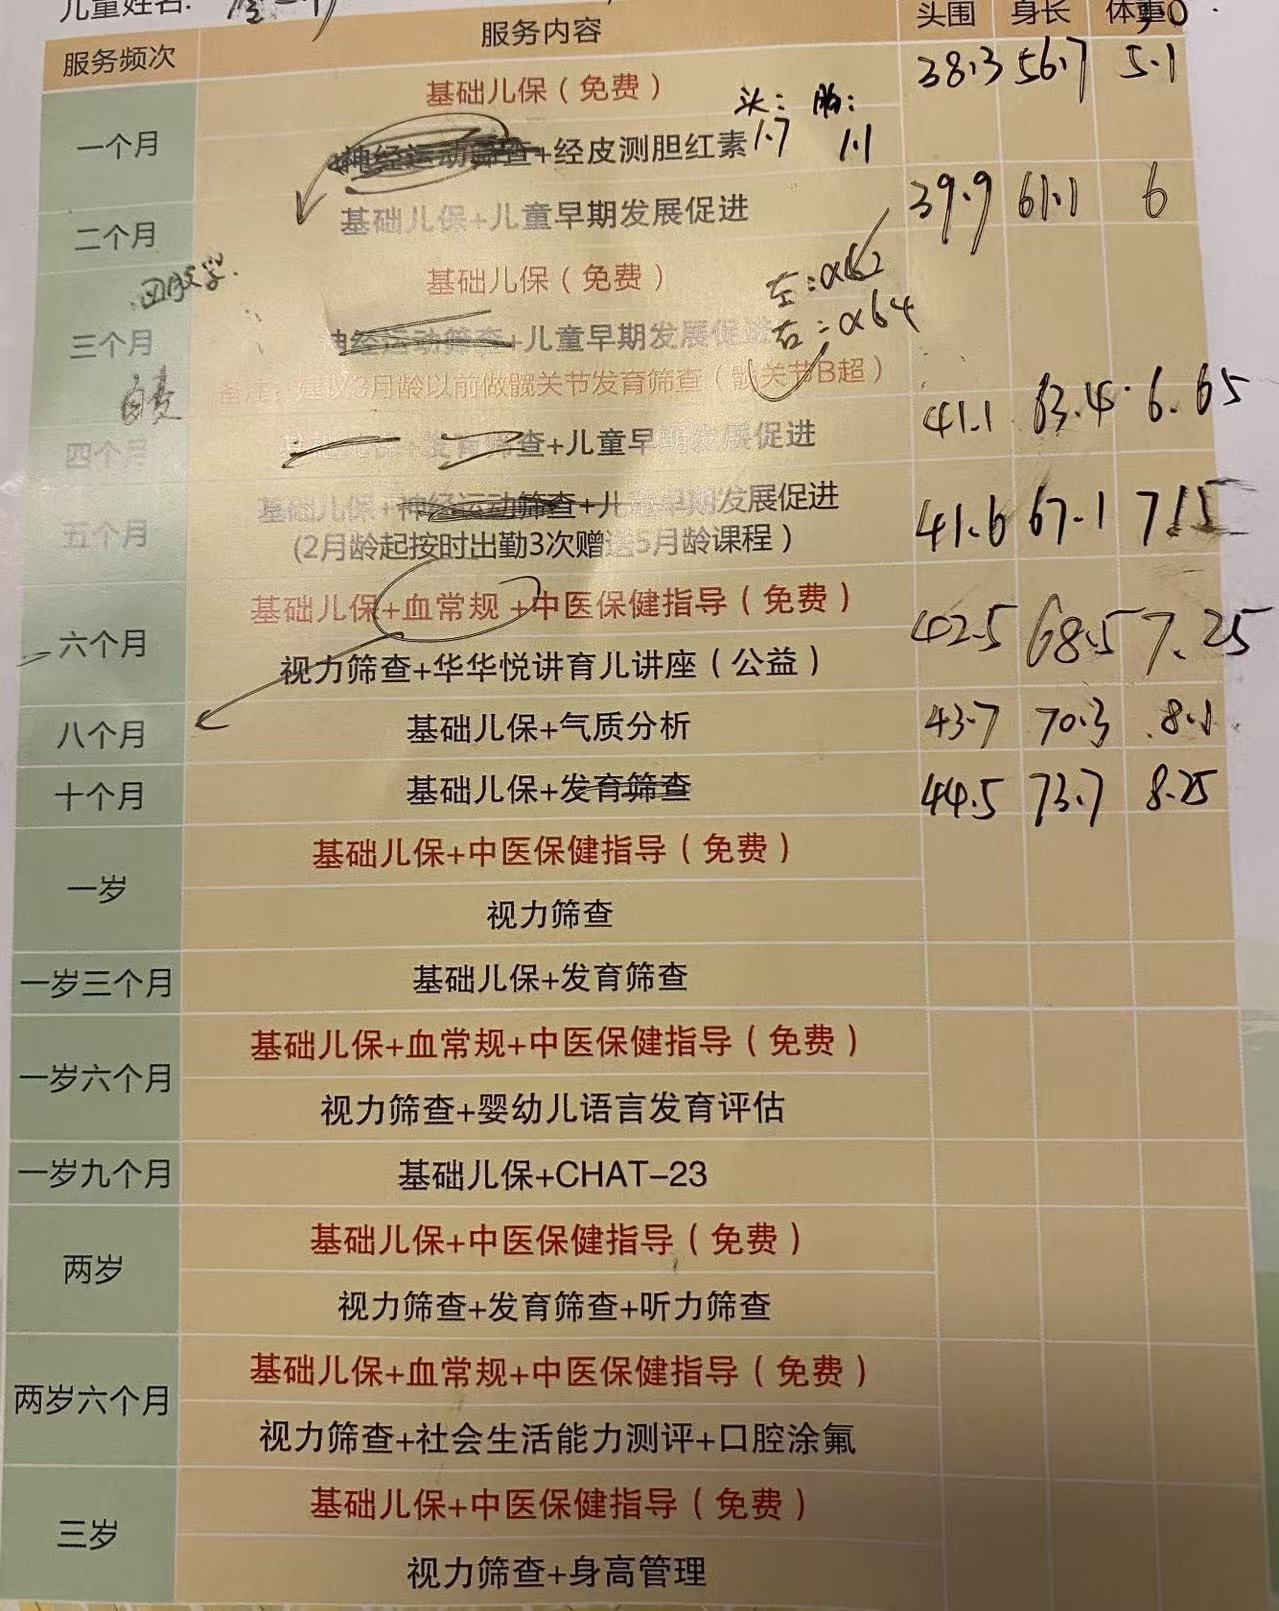 儿童姓名:
服务频次 服务内容 头围 身长 体重
一个月 基础儿保（免费） 38.3 56.7 5.1
头: 胸:
神经运动筛查+经皮测胆红素 1.7 1.1
二个月 基础儿保+儿童早期发展促进 39.9 61.1 6
基础儿保（免费）
左:α62
三个月 神经运动筛查+儿童早期发展促进 右:α64
备注：建议3月龄以前做髋关节发育筛查（髋关节B超）
自费
四个月 基础儿保+发育筛查+儿童早期发展促进 41.1 63.4 6.65
五个月 基础儿保+神经运动筛查+儿童早期发展促进 41.6 67.1 7.15
(2月龄起按时出勤3次赠送5月龄课程）
六个月 基础儿保+血常规+中医保健指导（免费） 42.5 68.5 7.25
视力筛查+华华悦讲育儿讲座（公益）
八个月 基础儿保+气质分析 43.7 70.3 8.1
十个月 基础儿保+发育筛查 44.5 73.7 8.25
一岁 基础儿保+中医保健指导（免费）
视力筛查
一岁三个月 基础儿保+发育筛查
一岁六个月 基础儿保+血常规+中医保健指导（免费）
视力筛查+婴幼儿语言发育评估
一岁九个月 基础儿保+CHAT–23
两岁 基础儿保+中医保健指导（免费）
视力筛查+发育筛查+听力筛查
两岁六个月 基础儿保+血常规+中医保健指导（免费）
视力筛查+社会生活能力测评+口腔涂氟
三岁 基础儿保+中医保健指导（免费）
视力筛查+身高管理